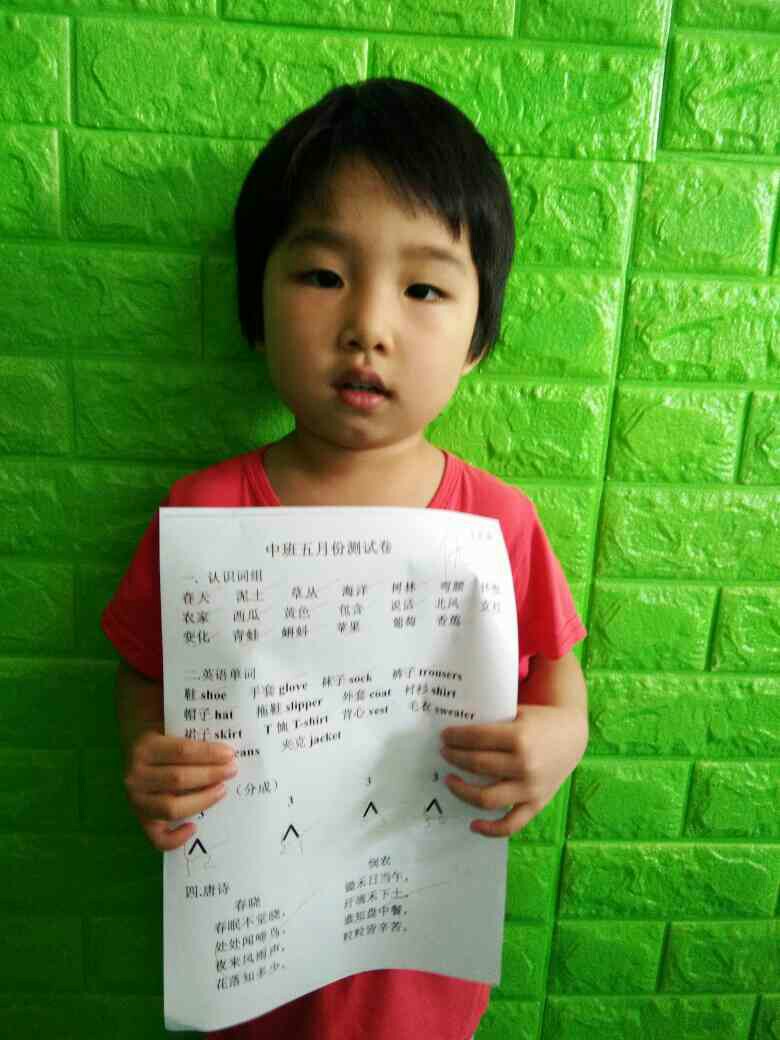 中班五月份测试卷
一、认识词组
春天 泥土 草丛 海洋 树林 弯腰
农家 西瓜 黄色 包含 说话 北风
变化 青蛙 蝌蚪 苹果 葡萄 香蕉
二.英语单词
鞋 shoe 手套 glove 袜子 sock 裤子 trousers
帽子 hat 拖鞋 slipper 外套 coat 衬衫 shirt
裙子 skirt T 恤 T-shirt 背心 vest 毛衣 sweater
eans 夹克 jacket
（分成）
3 3 3 3
四.唐诗
春晓
春眠不觉晓，
处处闻啼鸟，
夜来风雨声，
花落知多少。
悯农
锄禾日当午，
汗滴禾下土，
谁知盘中餐，
粒粒皆辛苦。